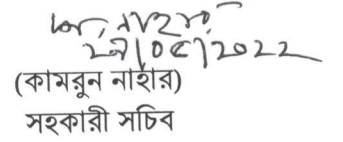 ২৯/০৫/2022
(কামরুন নাহার)
সহকারী সচিব